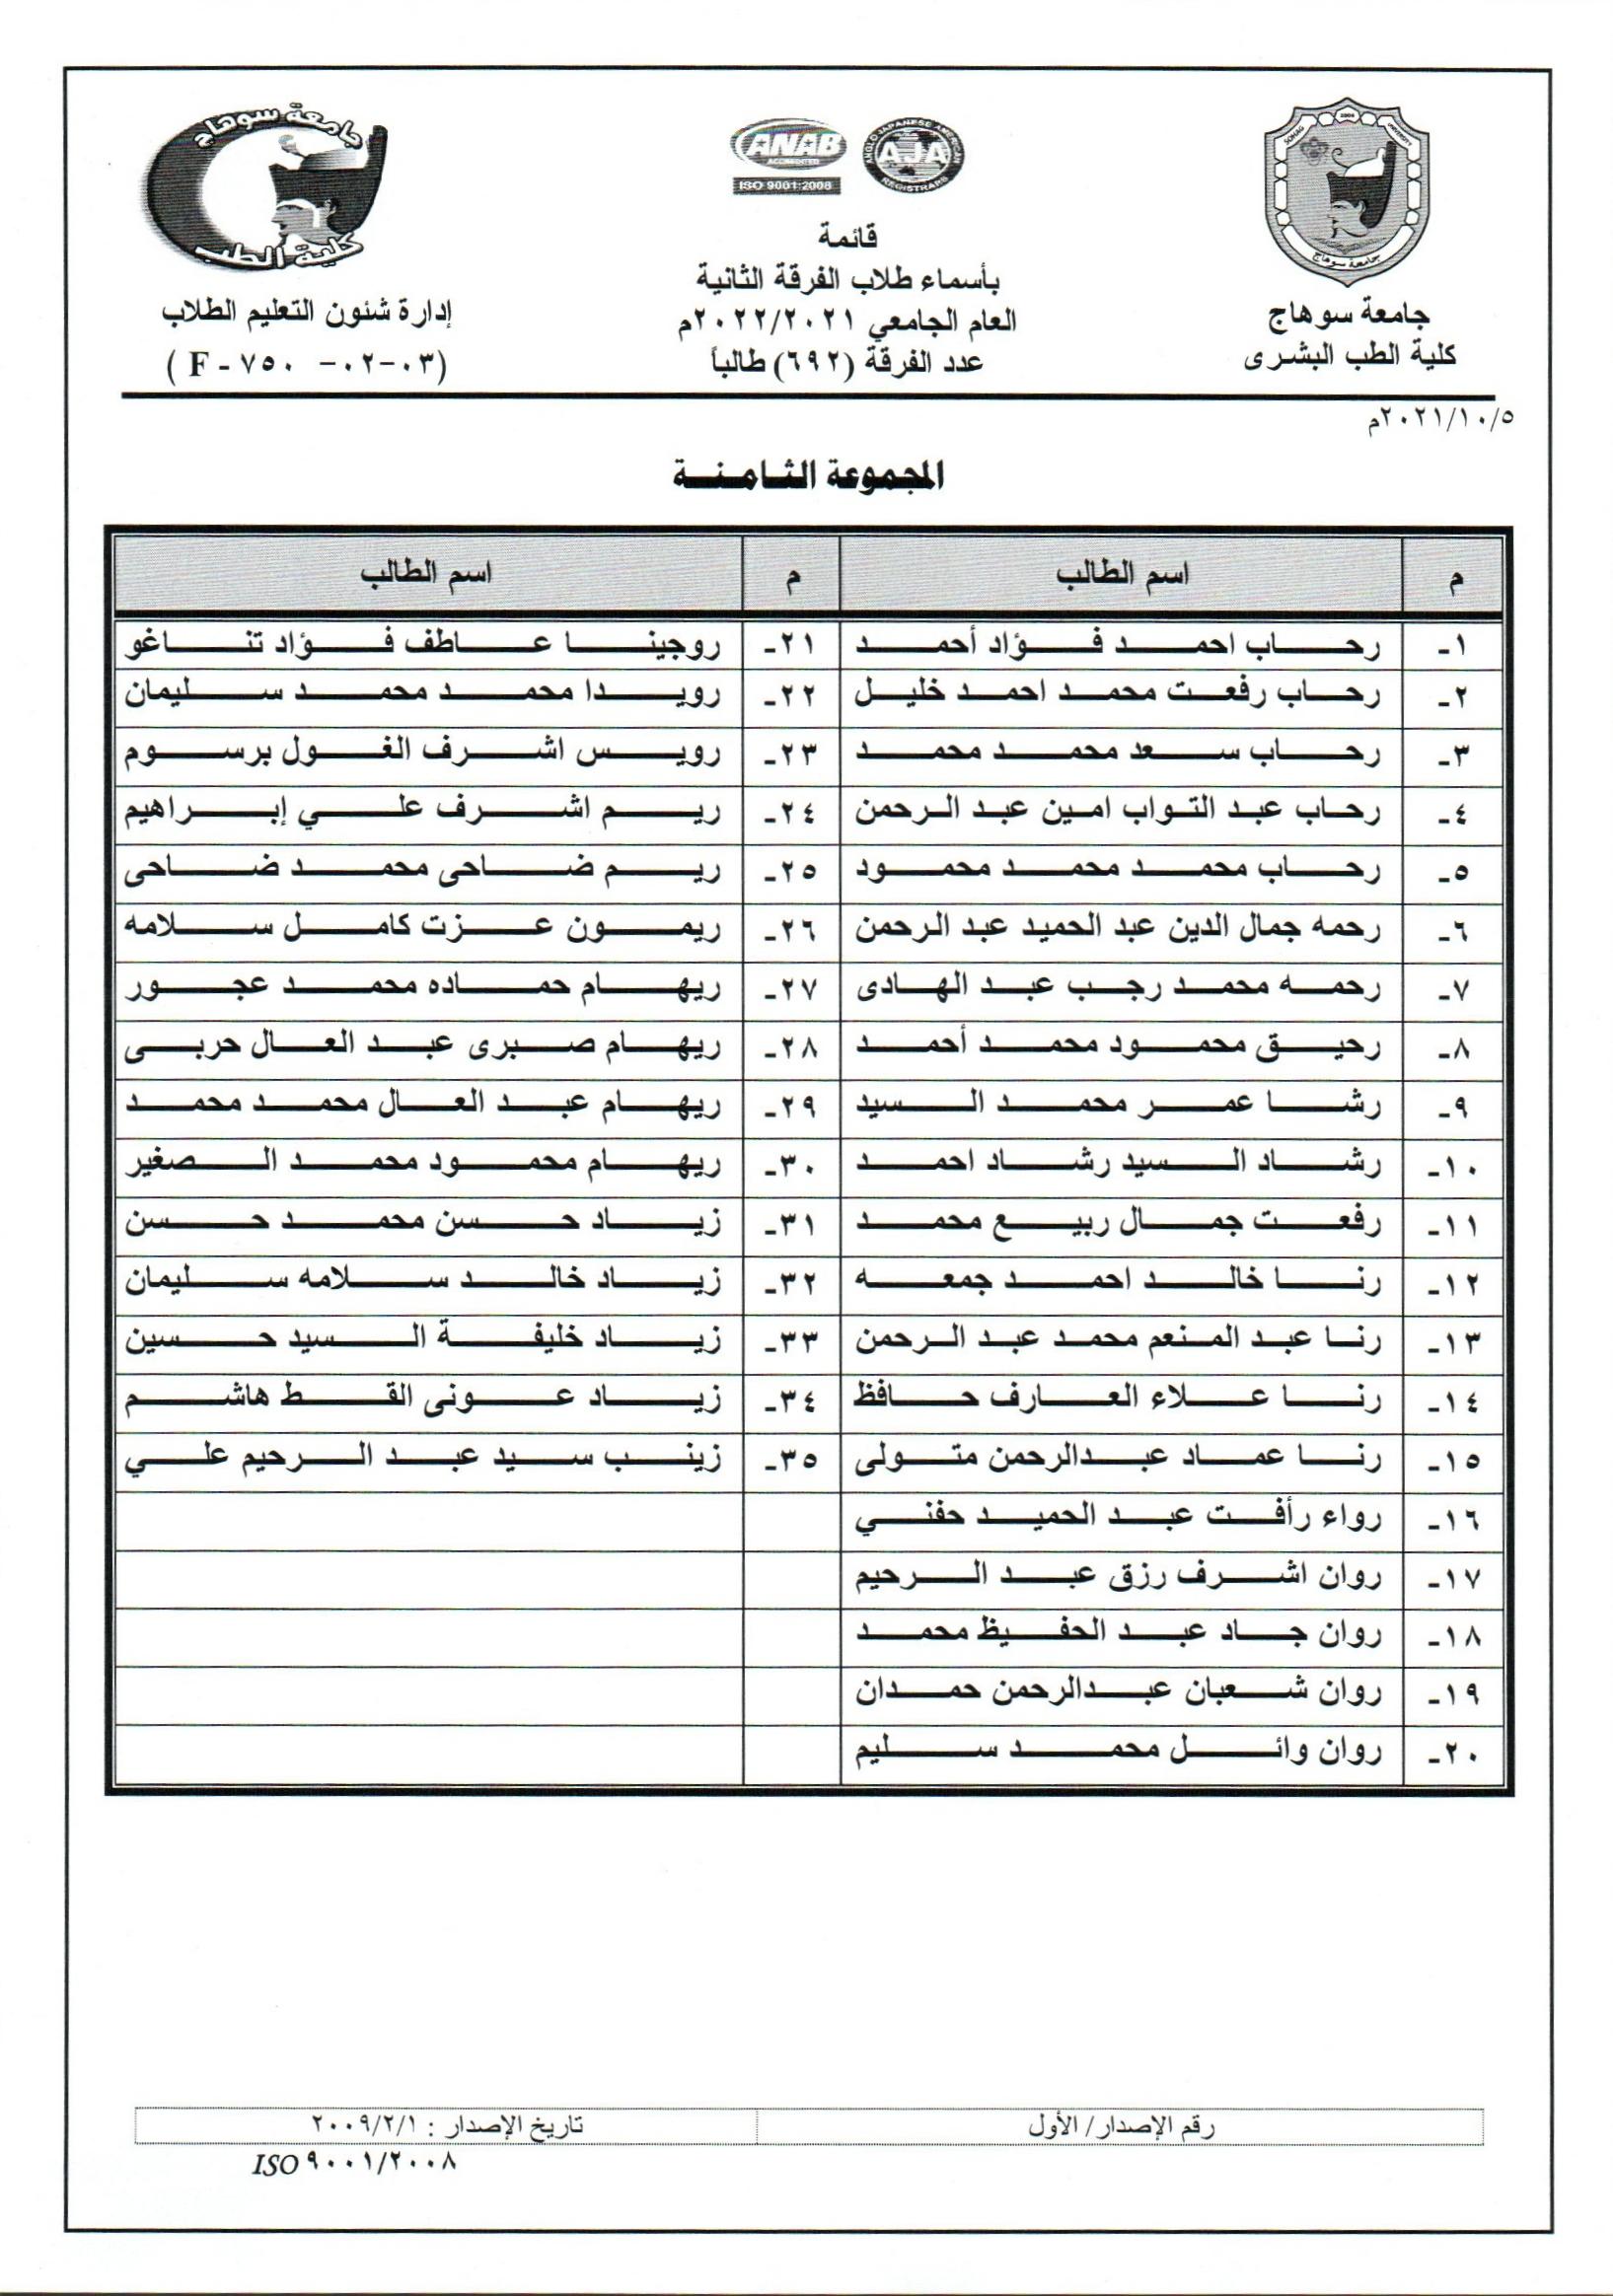 جامعة سوهاج
كلية الطب
ANAB
ACCREDITED
ISO 9001:2008
ANGLO JAPANESE AMERICAN
AJA
REGISTRARS
SOHAG 2006 UNIVERSITY
جامعة سوهاج
جامعة سوهاج
كلية الطب البشرى
قائمة
بأسماء طلاب الفرقة الثانية
العام الجامعي ٢٠٢٢/٢٠٢١م
عدد الفرقة (٦٩٢) طالباً
إدارة شئون التعليم الطلاب
(F - ٧٥٠ -٠٢-٠٣)
٢٠٢١/١٠/٥م
المجموعة الثامنة
م اسم الطالب م اسم الطالب
١- رحاب احمد فؤاد أحمد ٢١- روجينا عاطف فؤاد تناغو
٢- رحاب رفعت محمد احمد خليل ٢٢- رويدا محمد محمد سليمان
٣- رحاب سعد محمد محمد ٢٣- رويس اشرف الغول برسوم
٤- رحاب عبد التواب امين عبد الرحمن ٢٤- ريم اشرف علي إبراهيم
٥- رحاب محمد محمد محمود ٢٥- ريم ضاحى محمد ضاحى
٦- رحمه جمال الدين عبد الحميد عبد الرحمن ٢٦- ريمون عزت كامل سلامه
٧- رحمه محمد رجب عبد الهادى ٢٧- ريهام حماده محمد عجور
٨- رحيق محمود محمد أحمد ٢٨- ريهام صبرى عبد العال حربى
٩- رشا عمر محمد السيد ٢٩- ريهام عبد العال محمد محمد
١٠- رشاد السيد رشاد احمد ٣٠- ريهام محمود محمد الصغير
١١- رفعت جمال ربيع محمد ٣١- زياد حسن محمد حسن
١٢- رنا خالد احمد جمعه ٣٢- زياد خالد سلامه سليمان
١٣- رنا عبد المنعم محمد عبد الرحمن ٣٣- زياد خليفة السيد حسين
١٤- رنا علاء العارف حافظ ٣٤- زياد عونى القط هاشم
١٥- رنا عماد عبدالرحمن متولى ٣٥- زينب سيد عبد الرحيم علي
١٦- رواء رأفت عبد الحميد حفني
١٧- روان اشرف رزق عبد الرحيم
١٨- روان جاد عبد الحفيظ محمد
١٩- روان شعبان عبدالرحمن حمدان
٢٠- روان وائل محمد سليم
رقم الإصدار/ الأول تاريخ الإصدار : ٢٠٠٩/٢/١
ISO ٩٠٠١/٢٠٠٨